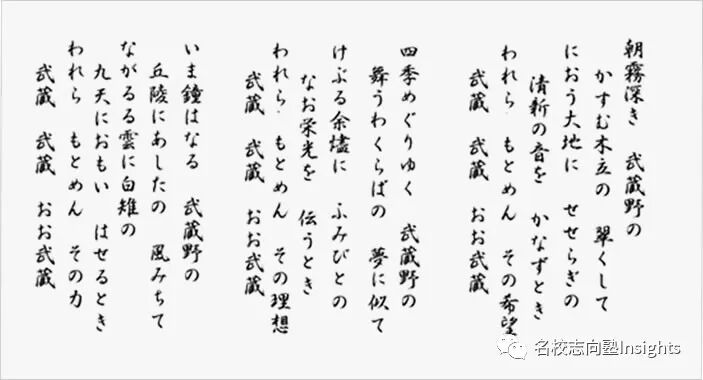 朝霧深き　武蔵野の
かすむ木立の　翠くして
におう大地に　せせらぎの
清新の音を　かなずとき
われら　もとめん　その希望
武蔵　武蔵　おお武蔵
四季めぐりゆく　武蔵野の
舞うわくらばの　夢に似て
けぶる余燼に　ふみびとの
なお栄光を　伝うとき
われら　もとめん　その理想
武蔵　武蔵　おお武蔵
いま鐘はなる　武蔵野の
丘陵にあしたの　風みちて
ながるる雲に白雉の
九天におもい　はせるとき
われら　もとめん　その力
武蔵　武蔵　おお武蔵
名校志向塾Insights